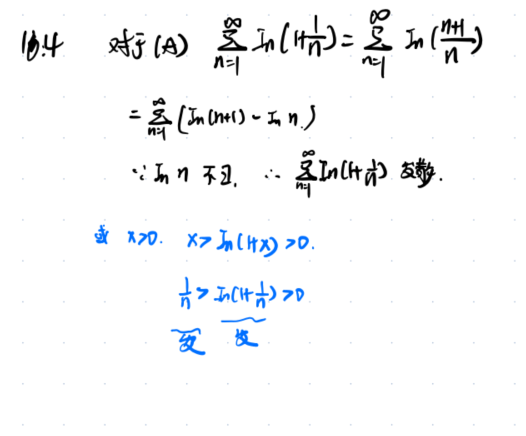 10.4 对于(A) ∑_{n=1}^{∞} ln(1+1/n) = ∑_{n=1}^{∞} ln((n+1)/n)
= ∑_{n=1}^{∞} (ln(n+1) - ln n.)
∵ ln n 不∃, ∴ ∑_{n=1}^{∞} ln(1+1/n) 发散.
或 x>0. x > ln(1+x) > 0.
1/n > ln(1+1/n) > 0
发 发